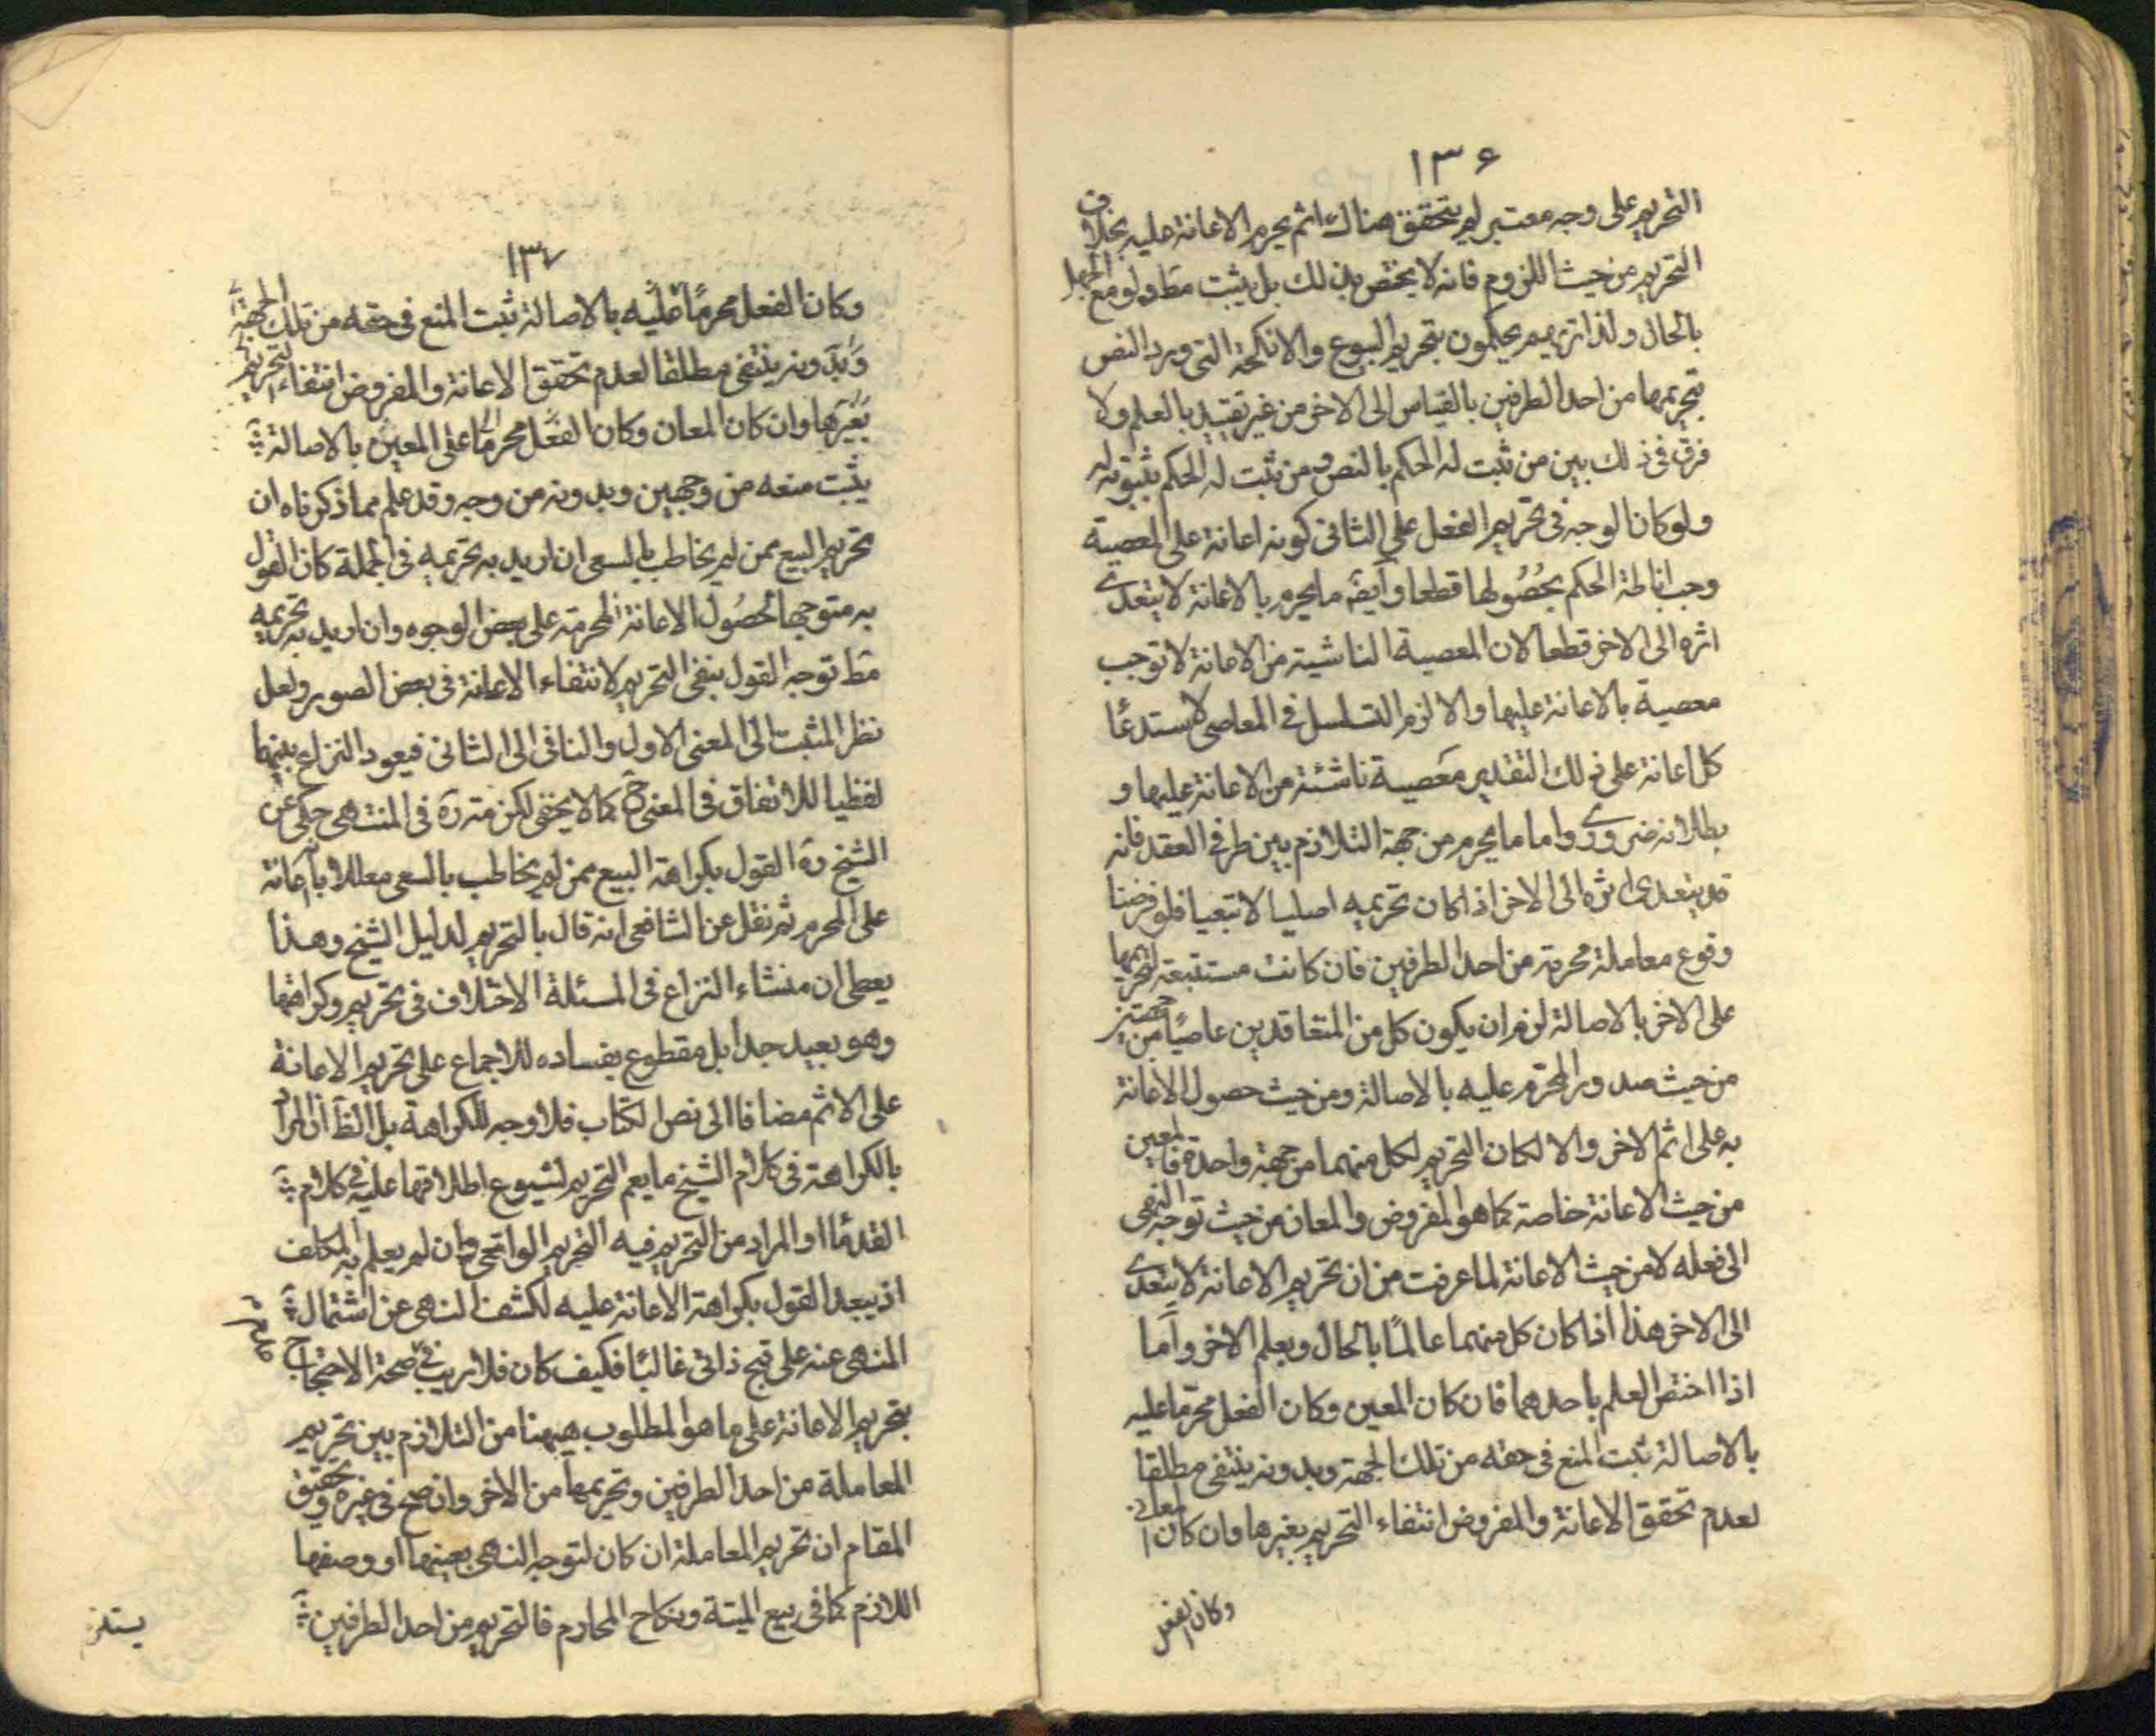 ١٣۶
التحريم على وجه معتبر لم يتحقق هناك اثم يحرم الاعانة عليه بخلاف
التحريم من حيث اللزوم فانه لا يختص بذلك بل يثبت مط ولو مع الجهل
بالحال ولذا تريهم يحكمون بتحريم البيوع والانكحة التى ورد النص
بتحريمها من احد الطرفين بالقياس الى الاخر من غير تقييد بالعلم ولا
فرق فى ذلك بين من ثبت له الحكم بالنص ومن ثبت له الحكم بثبوته له
ولو كان الوجه فى تحريم الفعل على الثانى كونه اعانة على المعصية
وجب اناطة الحكم بحصولها قطعا وايضَ ما يحرم بالاعانة لا يتعدى
اثره الى الاخر قطعا لان المعصية الناشية من الاعانة لا توجب
معصية بالاعانة عليها والا لزم التسلسل فى المعاصى لاستدعا
كل اعانة على ذلك التقدير معصية ناشئة من الاعانة عليها و
بطلانه ضرورى واما ما يحرم من جهة التلازم بين طرفى العقد فانه
قد يتعدى اثره الى الاخر اذا كان تحريمه اصليا لا تبعيا فلو فرضنا
وقوع معاملة محرمة من احد الطرفين فان كانت مستتبعة لتحريمها
على الاخر بالاصالة لزم ان يكون كل من المتعاقدين عاصيًا من جهتين
من حيث صدور المحرم عليه بالاصالة ومن حيث حصول الاعانة
به على اثم الاخر والا لكان التحريم لكل منهما من جهة واحدة فالمعين
من حيث الاعانة خاصة كما هو المفروض والمعان من حيث توجه النهى
الى فعله لا من حيث الاعانة لما عرفت من ان تحريم الاعانة لا يتعدى
الى الاخر هذا اذا كان كل منهما عالمًا بالحال وبعلم الاخر وامّا
اذا اختص العلم باحدهما فان كان المعين وكان الفعل محرّما عليه
بالاصالة ثبت المنع فى حقه من تلك الجهة وبدونه ينتفى مطلقا
لعدم تحقق الاعانة والمفروض انتفاء التحريم بغيرها وان كان المعان
وكان الفعل
١٣٧
وكان الفعل محرمًا عليه بالاصالة ثبت المنع فى حقه من تلك الجهة
وبدونه ينتفى مطلقا لعدم تحقق الاعانة والمفروض انتفاء التحريم
بغيرها وان كان المعان وكان الفعل محرمًا على المعين بالاصالة
يثبت منعه من وجهين وبدونه من وجه وقد علم مما ذكرناه ان
تحريم البيع ممن لم يخاطب بالسعى ان اريد به تحريمه فى الجملة كان القول
به متوجها لحصول الاعانة المحرمة على بعض الوجوه وان اريد به تحريمه
مط توجه القول بنفى التحريم لانتفاء الاعانة فى بعض الصور ولعل
نظر المثبت الى المعنى الاول والنافى الى الثانى فيعود النزاع بينهما
لفظيا للاتفاق فى المعنى ح كما لا يخفى لكن مة ره فى المنتهى حكى عن
الشيخ ره القول بكراهة البيع ممن لم يخاطب بالسعى معللا باعانة
على المحرم ثم نقل عن الشافعى انه قال بالتحريم لدليل الشيخ وهذا
يعطى ان منشاء النزاع فى المسئلة الاختلاف فى تحريم وكراهتها
وهو بعيد جدا بل مقطوع بفساده للاجماع على تحريم الاعانة
على الاثم مضافا الى نص الكتاب فلا وجه للكراهة بل الظ ان المراد
بالكراهة فى كلام الشيخ ما يعم التحريم لشيوع اطلاقها عليه فى كلام
القدما او المراد من التحريم فيه التحريم الواقعى وان لم يعلم به المكلف
اذ يبعد القول بكراهة الاعانة عليه لكشف النهى عن اشتمال
المنهى عنه على قبح ذاتى غالبًا فكيف كان فلا ريب فى صحة الاحتجاج
بتحريم الاعانة على ما هو المطلوب هيهنا من التلازم بين تحريم
المعاملة من احد الطرفين وتحريمها من الاخر وان صح فى غيره وتحقيق
المقام ان تحريم المعاملة ان كان لتوجه النهى بعينها او وصفها
اللازم كما فى بيع الميتة ونكاح المحارم فالتحريم من احد الطرفين
يستلزم